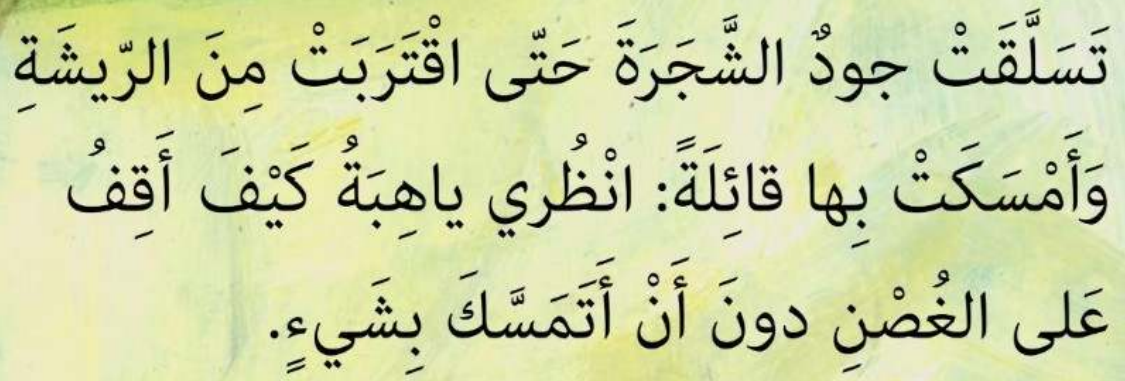 تَسَلَّقَتْ جودٌ الشَّجَرَةَ حَتّى اقْتَرَبَتْ مِنَ الرّيشَةِ
وَأَمْسَكَتْ بِها قائِلَةً: انْظُري ياهِبَةُ كَيْفَ أَقِفُ
عَلى الغُصْنِ دونَ أَنْ أَتَمَسَّكَ بِشَيءٍ.